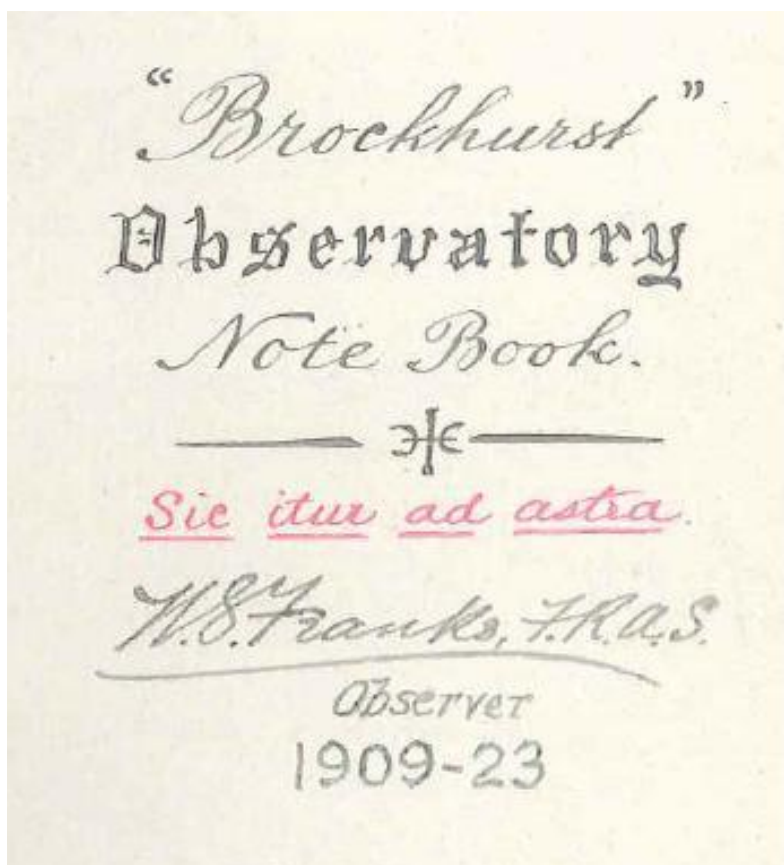 “Brockhurst”
Observatory
Note Book.
Sic itur ad astra.
W.S. Franks, F.R.A.S.
Observer
1909-23